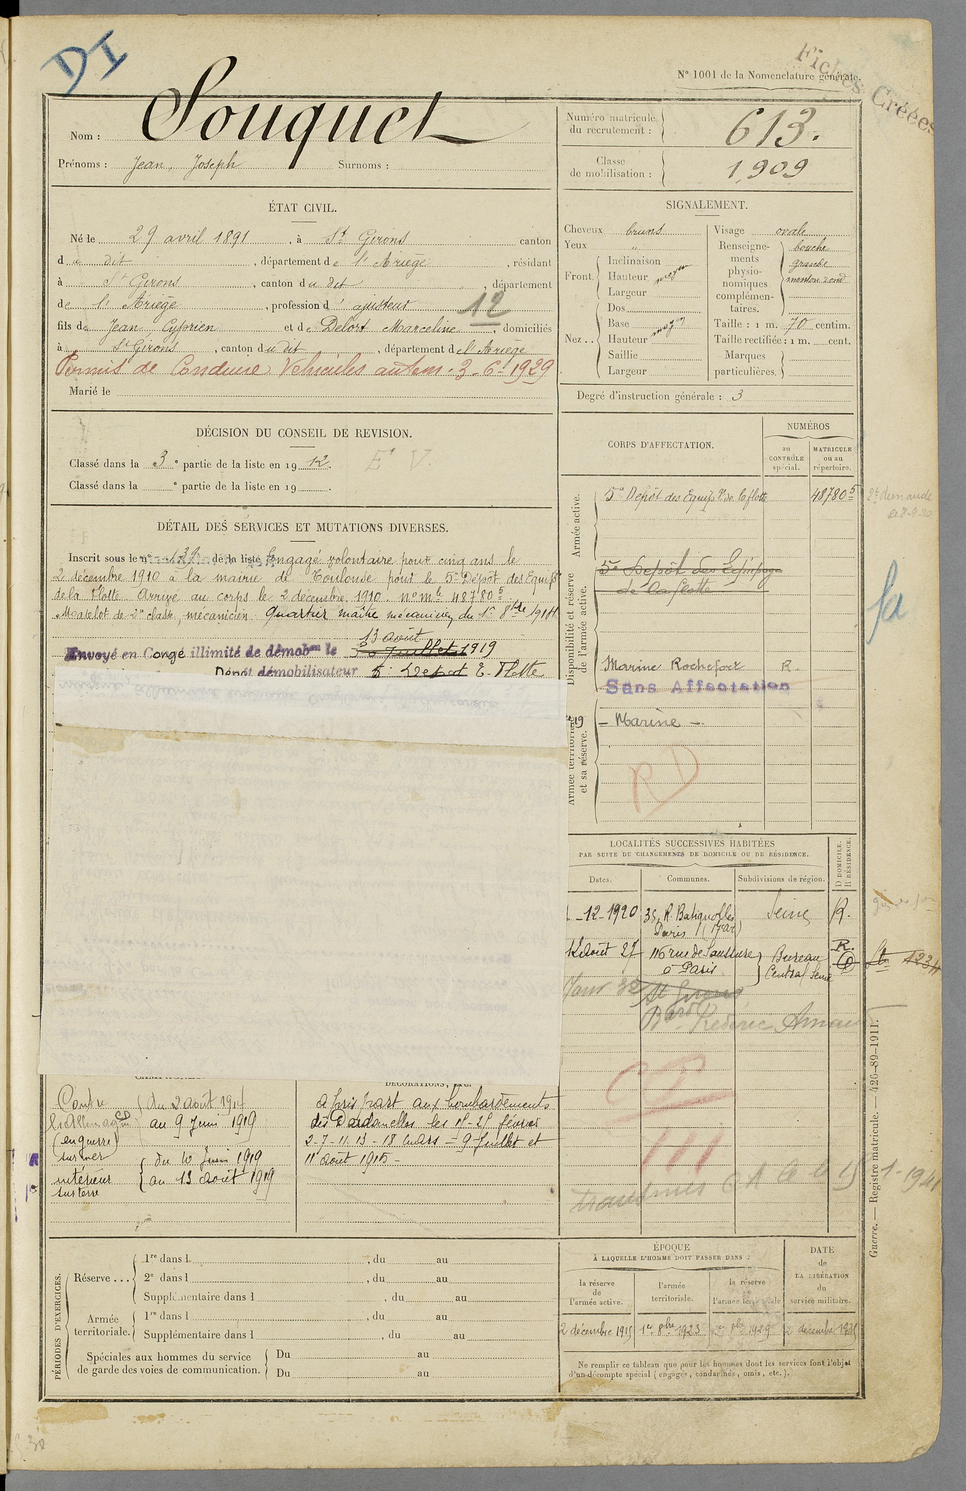 DI
Fiches Créées
N° 1001 de la Nomenclature générale.
Nom : Souquet
Prénoms : Jean, Joseph Surnoms :
Numéro matricule du recrutement : 613.
Classe de mobilisation : 1909
ÉTAT CIVIL.
Né le 29 avril 1891, à St Girons canton
du dit, département de l'Ariège, résidant
à St Girons, canton du dit, département
de l'Ariège, profession d'ajusteur 12
fils de Jean Cyprien et de Delort Marceline, domiciliés
à St Girons, canton du dit, département de l'Ariège
Permis de Conduire Vehicules autom. 3-6-1929
Marié le
SIGNALEMENT.
Cheveux bruns
Yeux "
Front. Inclinaison
Hauteur moyen
Largeur
Dos
Nez Base
Hauteur moyen
Saillie
Largeur
Visage ovale
Renseignements physionomiques complémentaires. bouche grande menton rond
Taille : 1 m. 70 centim.
Taille rectifiée : 1 m. cent.
Marques particulières.
Degré d'instruction générale : 3
DÉCISION DU CONSEIL DE REVISION.
Classé dans la 3e partie de la liste en 1912. Et V.
Classé dans la e partie de la liste en 19 .
DÉTAIL DES SERVICES ET MUTATIONS DIVERSES.
Inscrit sous le n° 139 de la liste Engagé volontaire pour cinq ans le
2 décembre 1910 à la mairie de Toulouse pour le 5e Dépôt des Equip.
de la Flotte. Arrivé au corps le 2 décembre 1910, n° mle 48780 5
Matelot de 2e classe, mécanicien. Quartier maître mécanicien du 1er 8bre 1914
13 août
Envoyé en Congé illimité de démobon le 30 Juillet 1919
Dépôt démobilisateur 5e Dépot E. Flotte
CORPS D'AFFECTATION.
NUMÉROS
au CONTRÔLE spécial.
MATRICULE ou au répertoire.
Armée active.
5e Dépôt des Equip. de la flotte 48780 5
Disponibilité et réserve de l'armée active.
5e Dépôt des Equipages
de la flotte
Marine Rochefort R.
Sans Affectation
Armée territoriale et sa réserve.
- Marine -
RD
LOCALITÉS SUCCESSIVES HABITÉES
PAR SUITE DE CHANGEMENTS DE DOMICILE OU DE RÉSIDENCE.
Dates. Communes. Subdivisions de région. D DOMICILE. R RÉSIDENCE.
-12-1920 35, R. Batignolles Paris (17ar) Seine R.
Août 27 116 rue de Saussure à Paris Bureau Central Seine R.
St Girons
DÉCORATIONS, ETC.
Contre l'Allemagne (en guerre) sur mer du 2 août 1914 au 9 Juin 1919
intérieur sur terre du 10 Juin 1919 au 13 août 1919
a pris part aux bombardements
des Dardanelles les 18-25 février
2-7-11-13-18 Mars - 9 Juillet et
11 août 1915 -
111
Guerre. — Registre matricule. — 426-89-1911.
PÉRIODES D'EXERCICES.
Réserve ... 1re dans l , du au
2e dans l , du au
Supplémentaire dans l , du au
Armée territoriale. 1re dans l , du au
Supplémentaire dans l , du au
Spéciales aux hommes du service de garde des voies de communication. Du au
Du au
ÉPOQUE
À LAQUELLE L'HOMME DOIT PASSER DANS :
la réserve de l'armée active.
l'armée territoriale.
la réserve de l'armée territoriale
DATE de LA LIBÉRATION du service militaire.
2 décembre 1915 1er 8bre 1923 1er 8bre 1929 2 décembre 1935
Ne remplir ce tableau que pour les hommes dont les services font l'objet
d'un décompte spécial (engagés, condamnés, omis, etc.).